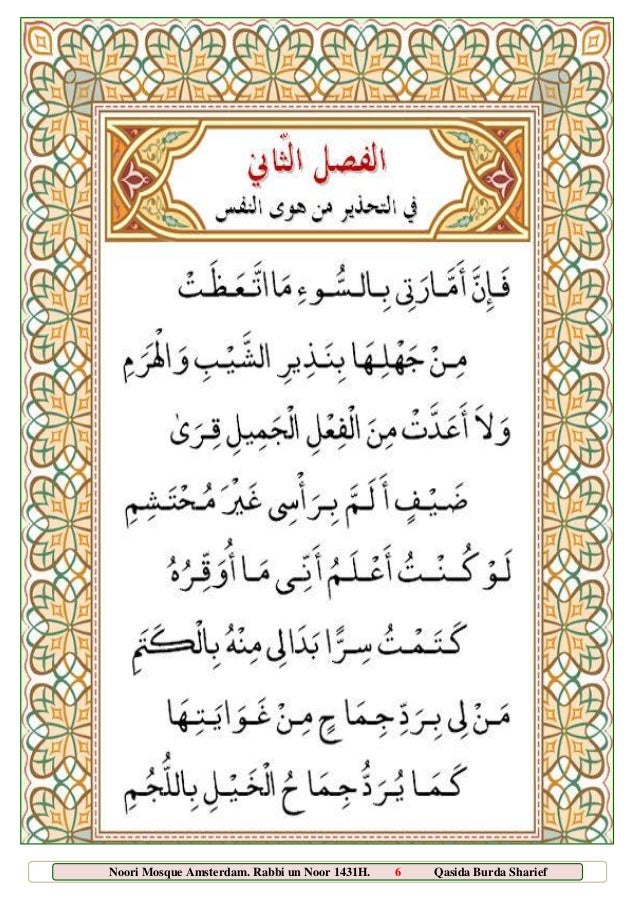 الفصل الثّاني
في التحذير من هوى النفس
فَإِنَّ أَمَّارَتِي بِالسُّوءِ مَا اتَّعَظَتْ
مِنْ جَهْلِهَا بِنَذِيرِ الشَّيْبِ وَالْهَرَمِ
وَلَا أَعَدَّتْ مِنَ الْفِعْلِ الْجَمِيلِ قِرَىٰ
ضَيْفٍ أَلَمَّ بِرَأْسِي غَيْرَ مُحْتَشِمِ
لَوْ كُنْتُ أَعْلَمُ أَنِّي مَا أُوَقِّرُهُ
كَتَمْتُ سِرًّا بَدَا لِي مِنْهُ بِالْكَتَمِ
مَنْ لِي بِرَدِّ جِمَاحٍ مِنْ غَوَايَتِهَا
كَمَا يُرَدُّ جِمَاحُ الْخَيْلِ بِاللُّجُمِ
Noori Mosque Amsterdam. Rabbi un Noor 1431H. 6 Qasida Burda Sharief